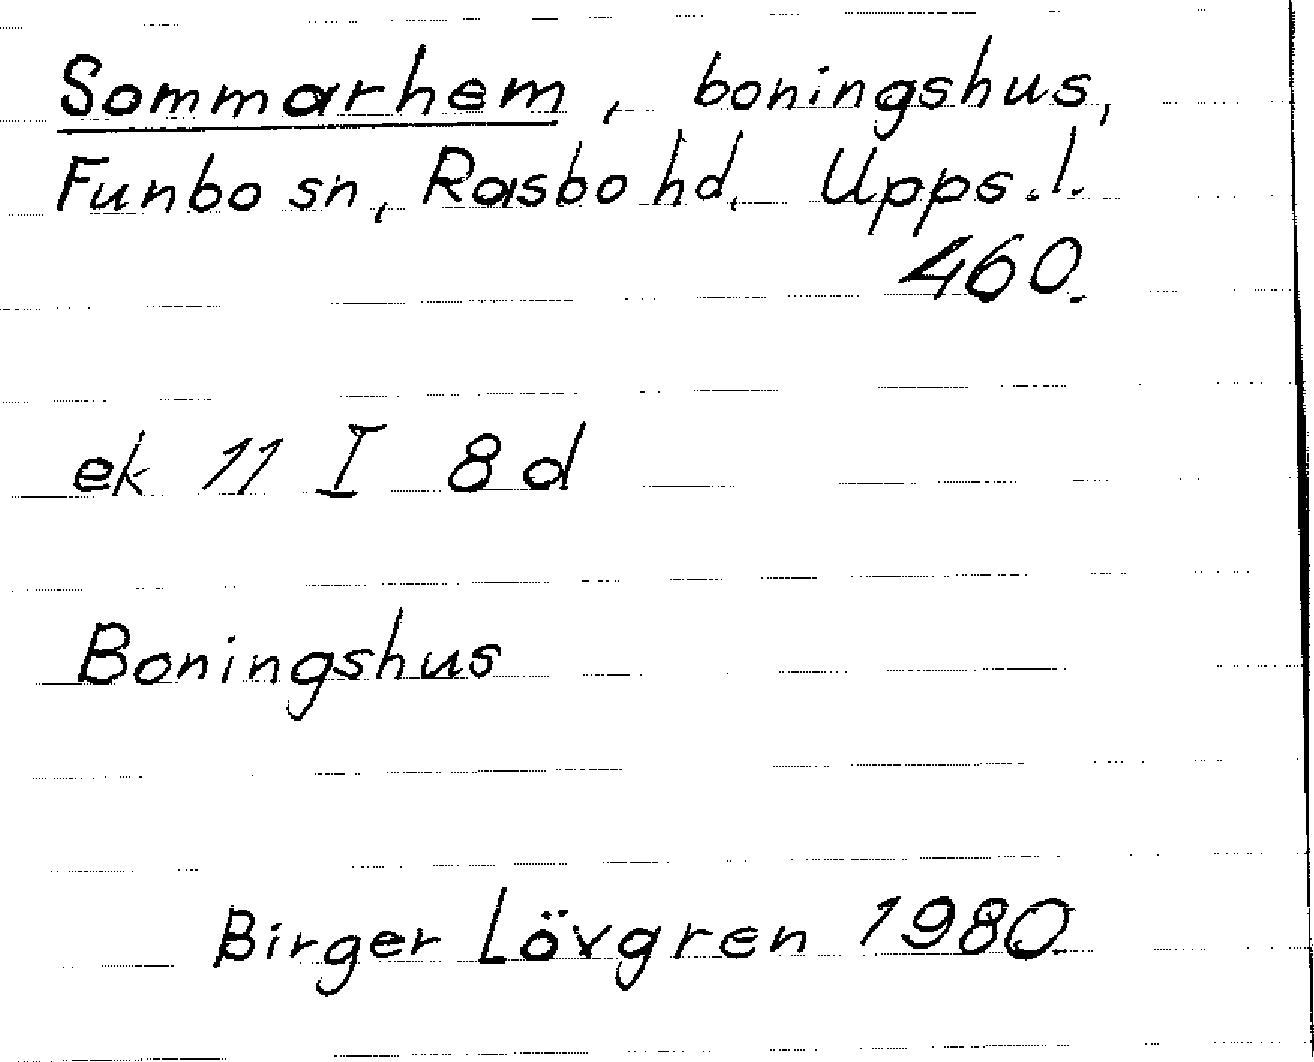 Sommarhem, boningshus,
Funbo sn, Rasbo hd, Upps.l.
460.
ek 11 I 8 d
Boningshus
Birger Lövgren 1980.